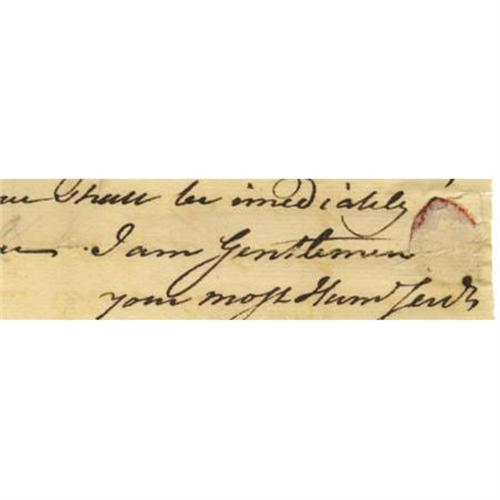 shall be imediately
I am Gentlemen
your most Hum Servt